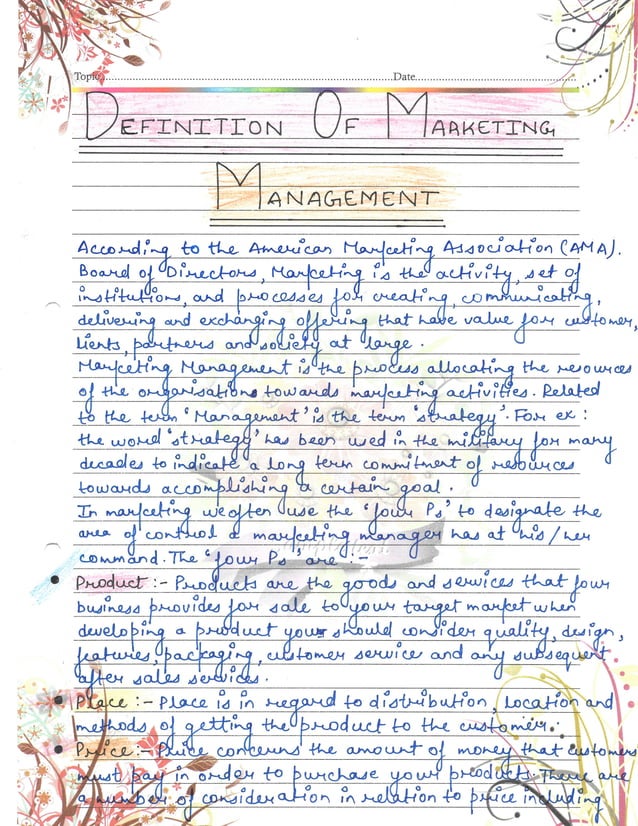 Topic Date
DEFINITION OF MARKETING
MANAGEMENT
According to the American Marketing Association (AMA).
Board of Directors, Marketing is the activity, set of
institutions, and processes for creating, communicating,
delivering and exchanging offering that have value for customer,
lients, partners and society at large.
Marketing Management is the process allocating the resources
of the organisations towards marketing activities. Related
to the term 'Management' is the term 'strategy'. For ex:
the word 'strategy' has been used in the military for many
decades to indicate a long term commitment of resources
towards accomplishing a certain goal.
In marketing we often use the 'four Ps' to designate the
area of control a marketing manager has at his/her
command. The 'four Ps' are :-
• Product :- Products are the goods and services that four
business provides for sale to your target market when
developing a product your should consider quality, design,
features, packaging, customer service and any subsequent
after sales services.
• Place :- Place is in regard to distribution, location and
methods of getting the product to the customer.
• Price :- Price concerns the amount of money that customers
must pay in order to purchase your products. There are
a number of consideration in relation to price including